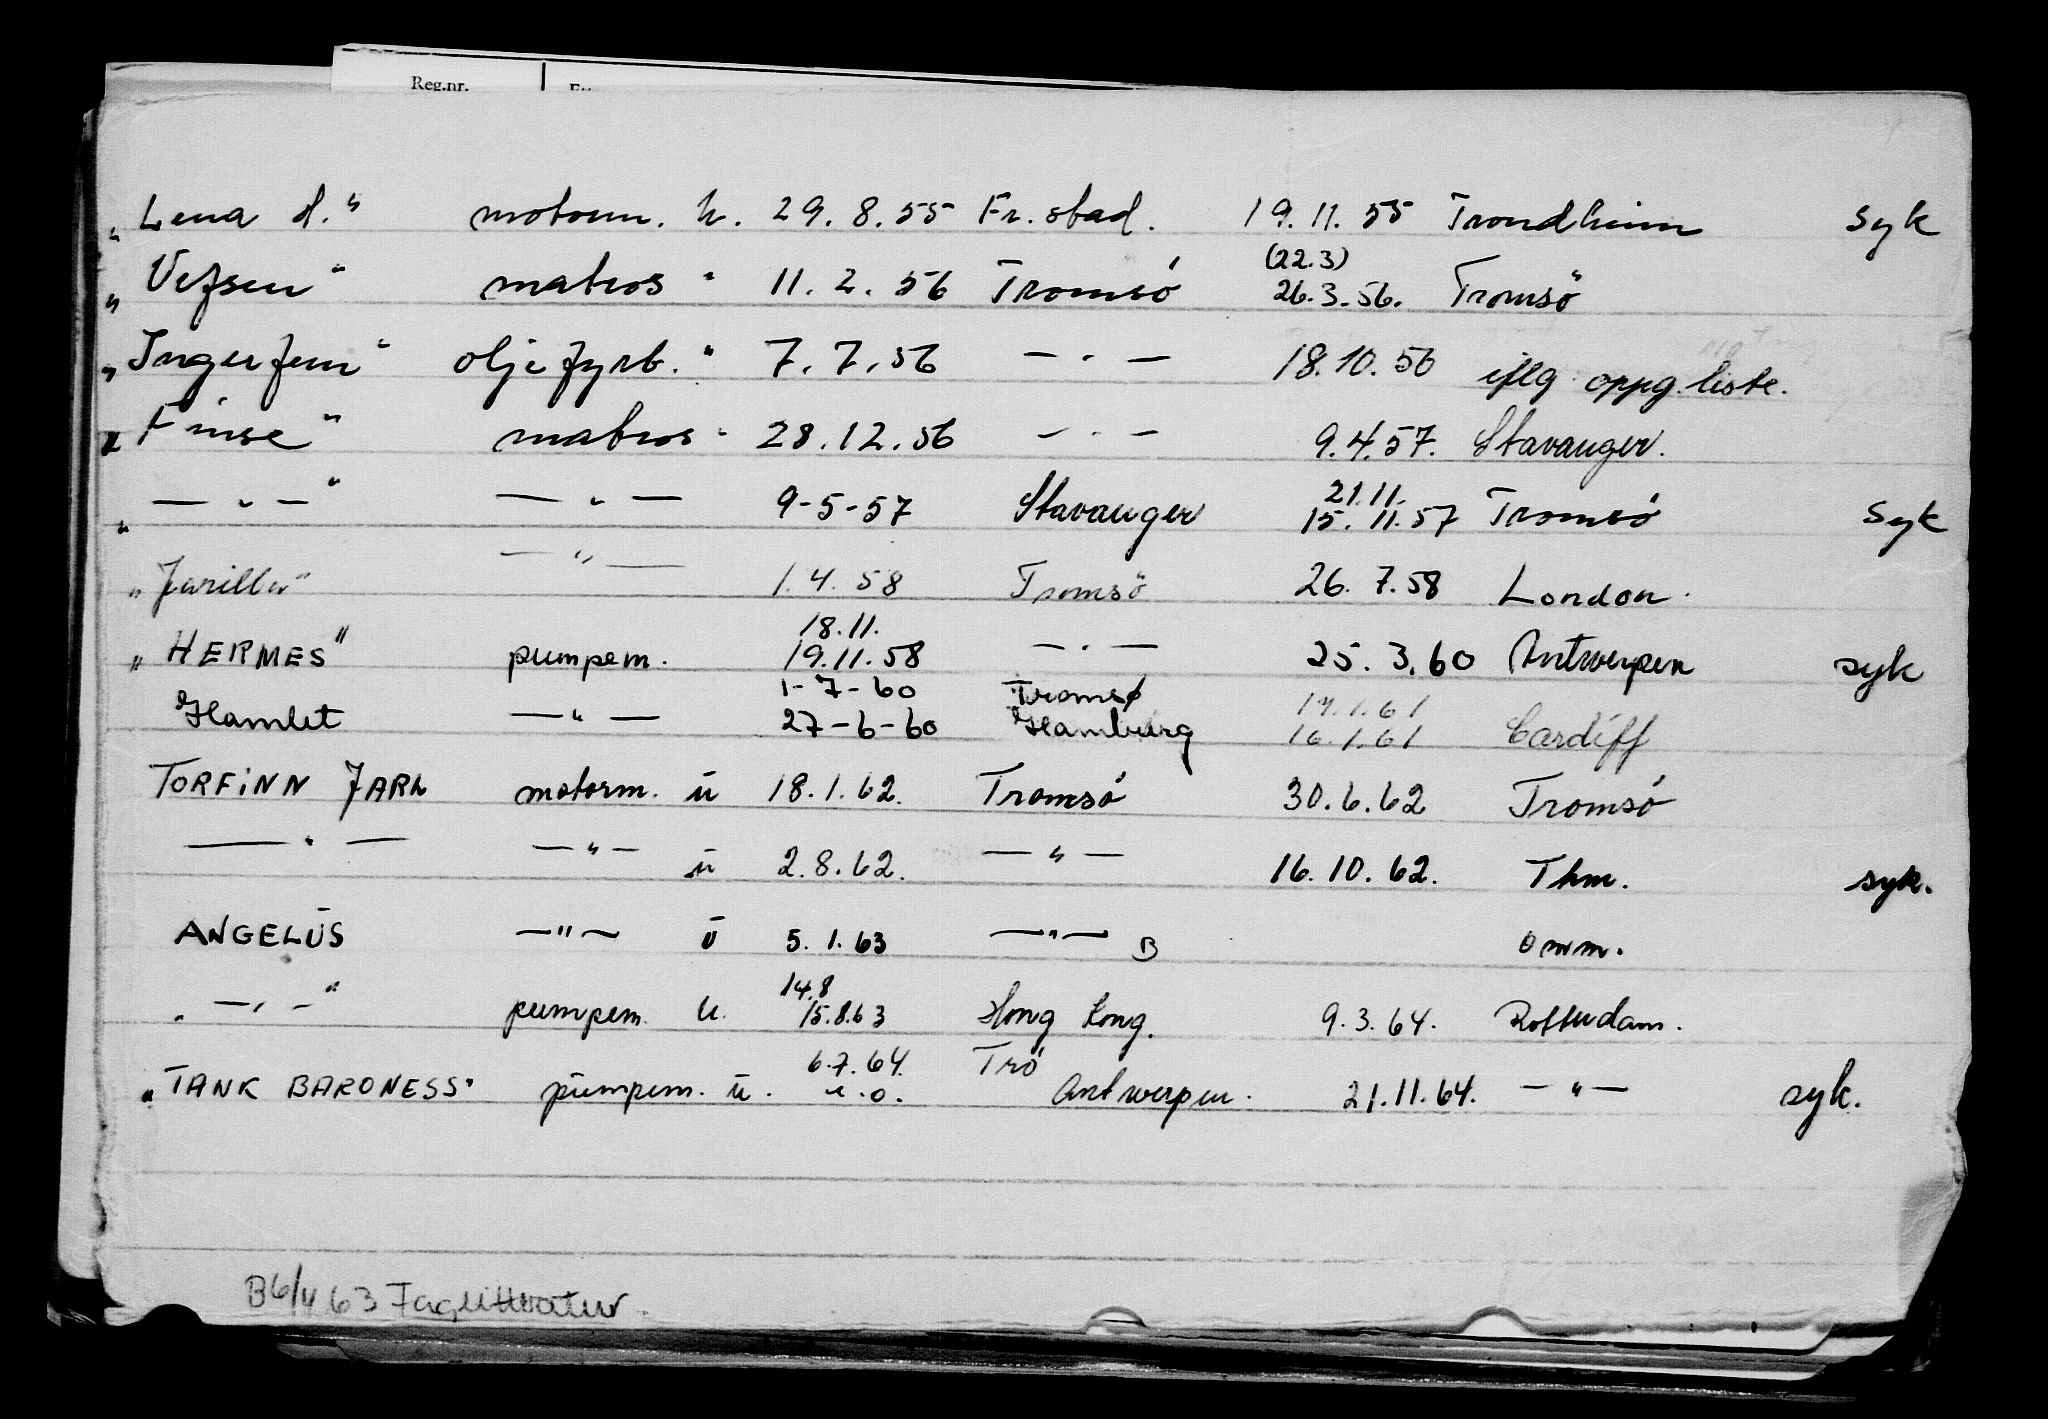 Reg.nr.
„Lena d." motorm. u. 29.8.55 Fr.stad. 19.11.55 Trondheim syk
(22.3)
„Vefsen" matros " 11.2.56 Tromsö 26.3.56. Tromsö
„Ingerfem" oljefyrb. " 7.7.56 — " — 18.10.56 iflg. oppg. liste.
„Finse" matros " 28.12.56 — " — 9.4.57. Stavanger.
21.11.
„ — " — " — " — 9-5-57 Stavanger 15.11.57 Tromsö Syk
„Jarilla" — " — 1.4.58 Tromsö 26.7.58 London.
18.11.
„HERMES" pumpem. 19.11.58 — " — 25.3.60 Antwerpen syk
1-7-60 Tromsø 17.1.61
Hamlet — " — 27-6-60 Hamburg 16.1.61 Cardiff
TORFINN JARL motorm. u 18.1.62. Tromsö 30.6.62 Tromsö
— " — — " — u 2.8.62. — " — 16.10.62. Thm. syk.
ANGELUS — " — u 5.1.63 — " — B omm.
14.8
„ — " — " pumpem. u. 15.8.63 Hong Kong. 9.3.64. Rotterdam.
6.7.64. Trö
„TANK BARONESS" pumpem. u. u.o. Antwerpen. 21.11.64. — " — syk.
B6/4 63 Faglitteratur.